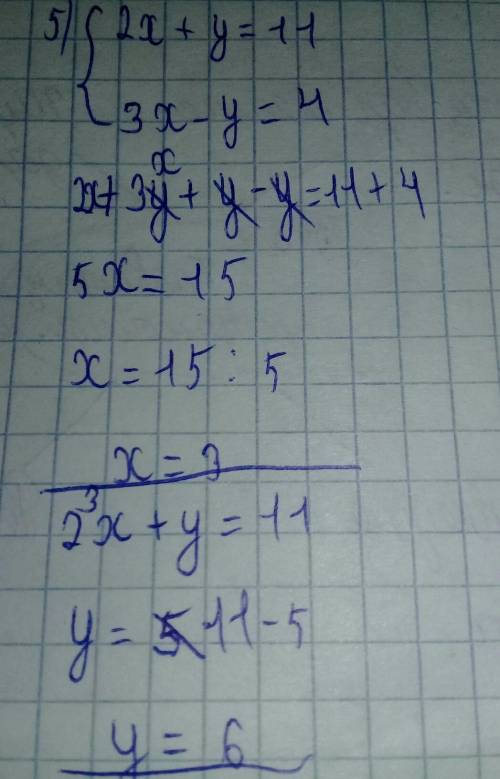 5) { 2x + y = 11
3x - y = 4
2x + 3x + y - y = 11 + 4
5x = 15
x = 15 : 5
x = 3
2³x + y = 11
y = 11 - 5
y = 6